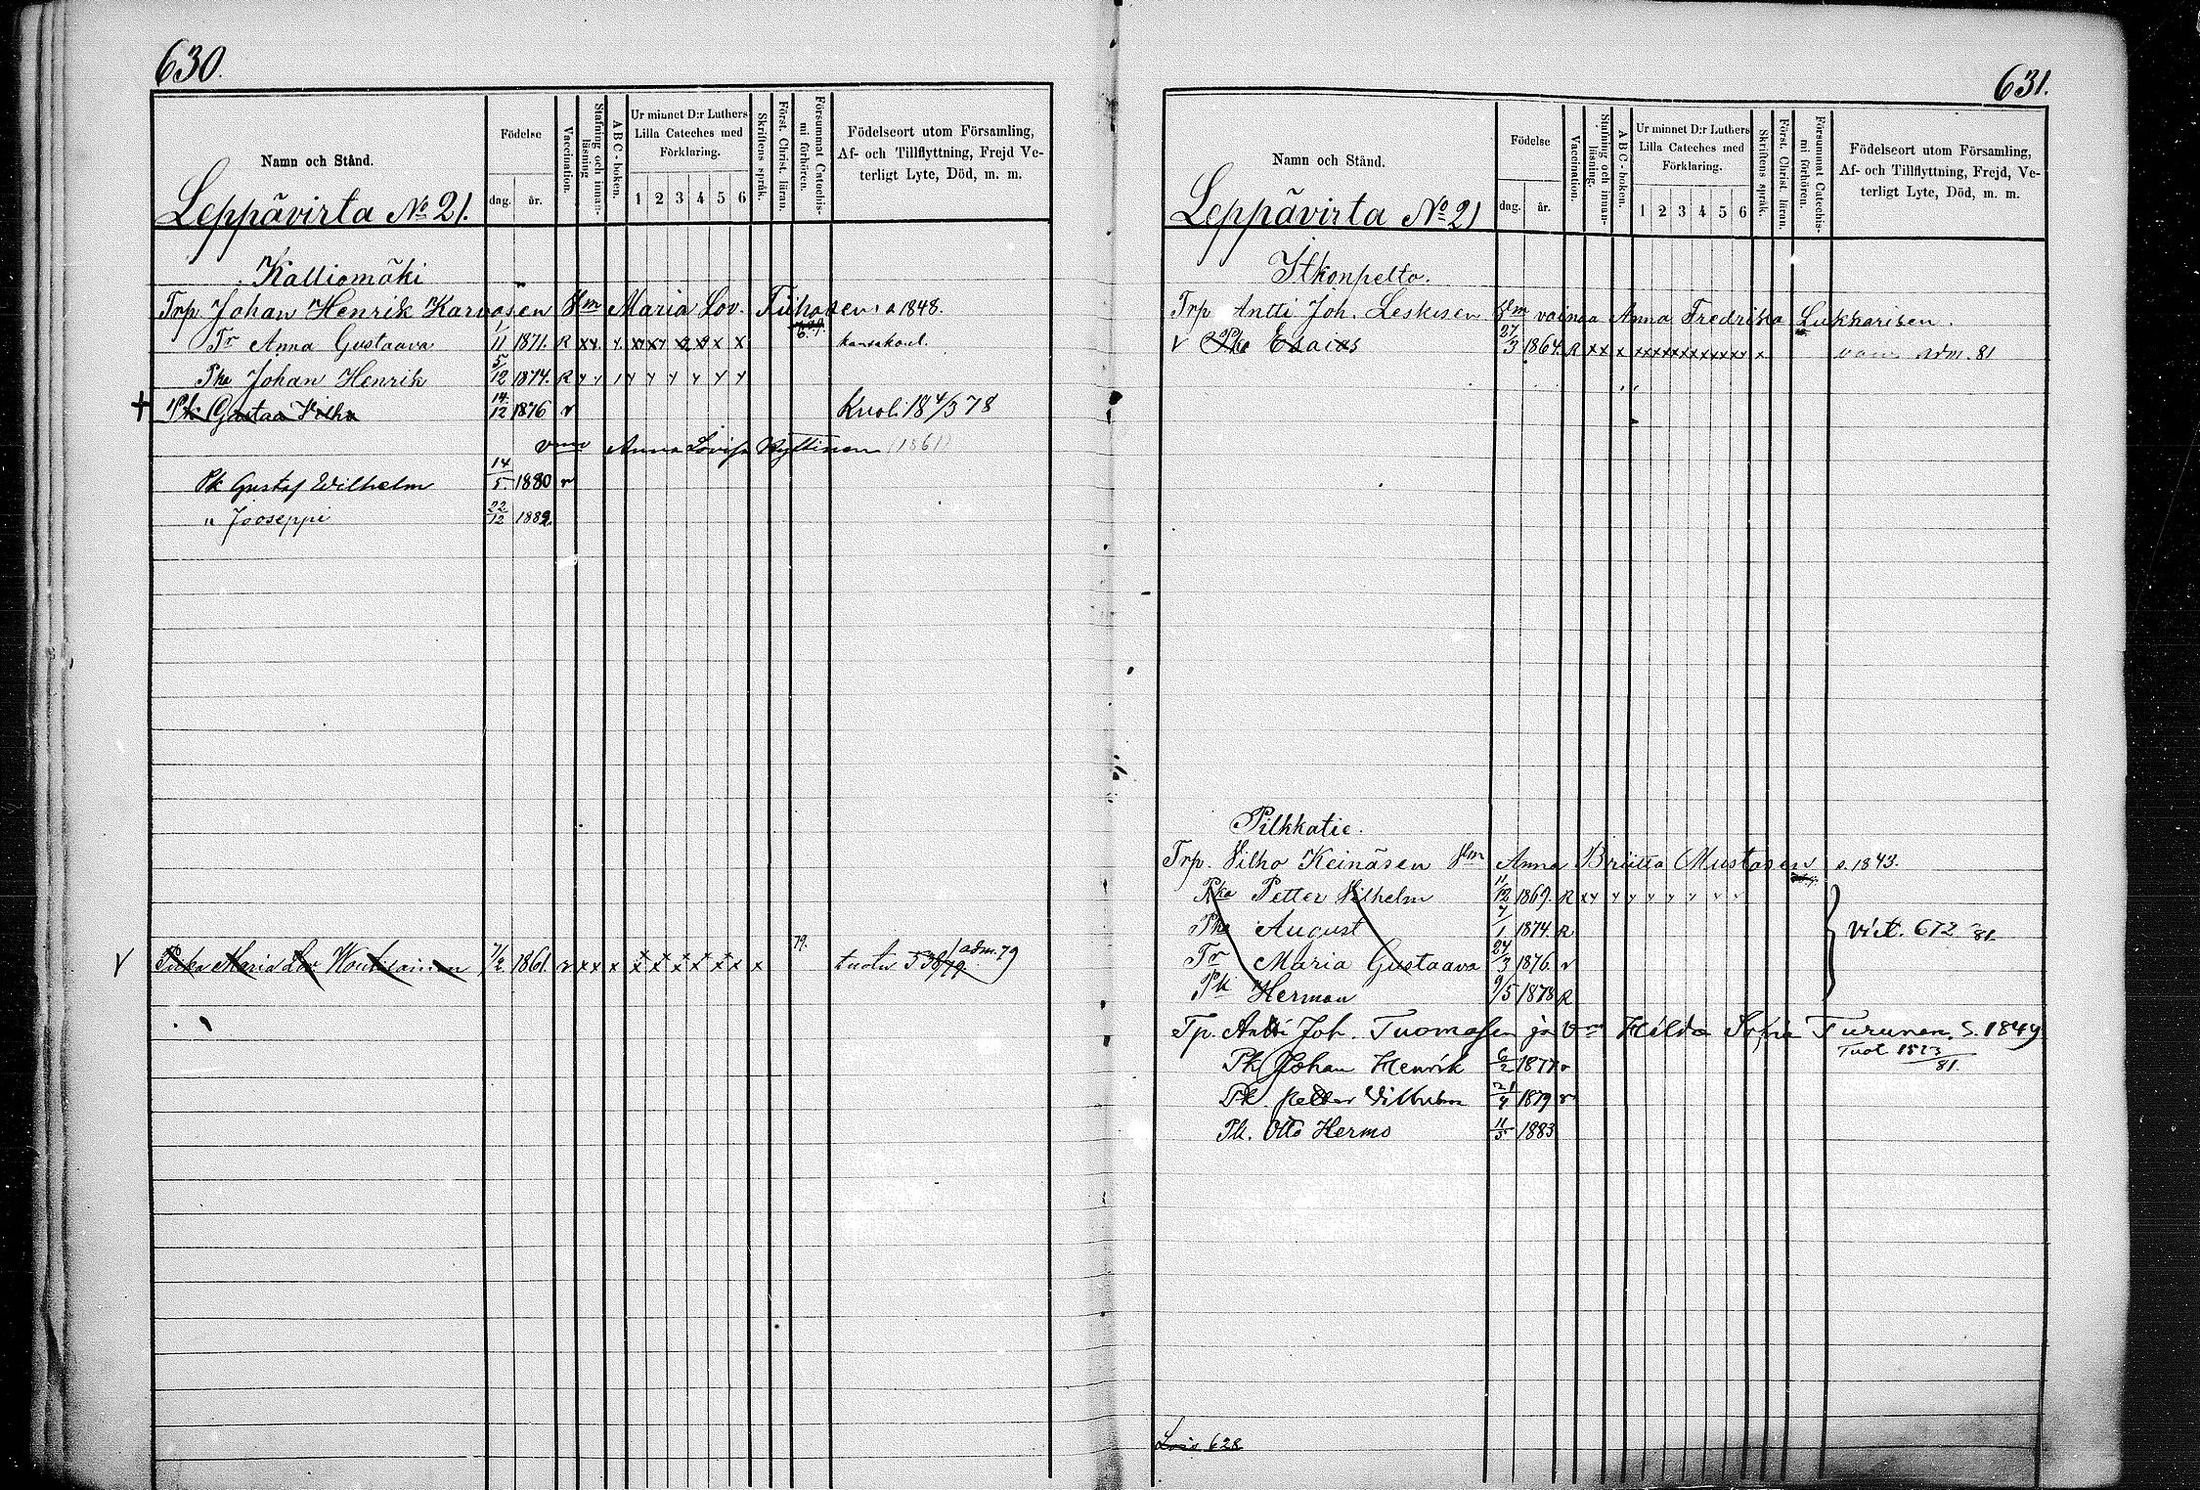 630.
Namn och Stånd.
Födelse
dag. år.
Vaccination.
Stafning och innan-läsning
A B C-boken.
Ur minnet D:r Luthers Lilla Cateches med Förklaring.
1 2 3 4 5 6
Skriftens språk.
Först. Christ. läran.
Försummat Catechis-mi förhören.
Födelseort utom Församling, Af- och Tillflyttning, Frejd Ve-terligt Lyte, Död, m. m.
Leppävirta No 21.
Kalliomäki
Trp. Johan Henrik Karvosen Vm Maria Lov. Tiihosen s. 1848.
Tr Anna Gustaava 1/11 1871. R kansakoul.
Pka Johan Henrik 5/12 1874. R
+ Pk Gustaa Vilho 14/12 1876 v Kuoli 18 4/3 78
vmo Anna Lovisa Kyllinen (1861)
Pk Gustaf Wilhelm 14/5 1880 v
" Jooseppi 22/12 1882
V Piika Maria Lov 1861. v x x x 79. adm. 79
631.
Namn och Stånd.
Födelse
dag. år.
Vaccination.
Stafning och innan-läsning.
A B C-boken.
Ur minnet D:r Luthers Lilla Cateches med Förklaring.
1 2 3 4 5 6
Skriftens språk.
Först. Christ. läran.
Försummat Catechis-mi förhören.
Födelseort utom Församling, Af- och Tillflyttning, Frejd, Ve-terligt Lyte, Död, m. m.
Leppävirta No 21
Itkonpelto.
Trp Antti Joh. Leskisen Vm vainaa Anna Fredrika Lukkarisen.
V Pka Esaias 27/3 1864. R x x x adm. 81
Pilkkatie.
Trp. Vilho Keinäsen Vm Anna Briitta Mustosen s. 1843.
Pka Petter Vilhelm 11/12 1869. R
Pka August 7/1 1874. R vict. 672 81
Tr Maria Gustaava 24/3 1876. v
Pk Herman 9/5 1878 R
Tp. Antti Joh. Tuomasen ja Vm Hilda Sofia Turunen. S. 1849
Pk Johan Henrik 6/2 1877 v Tuot 1523/81.
Pk. Petter Vilhelm 21/4 1879 v
Pk. Otto Hermo 11/5 1883
628